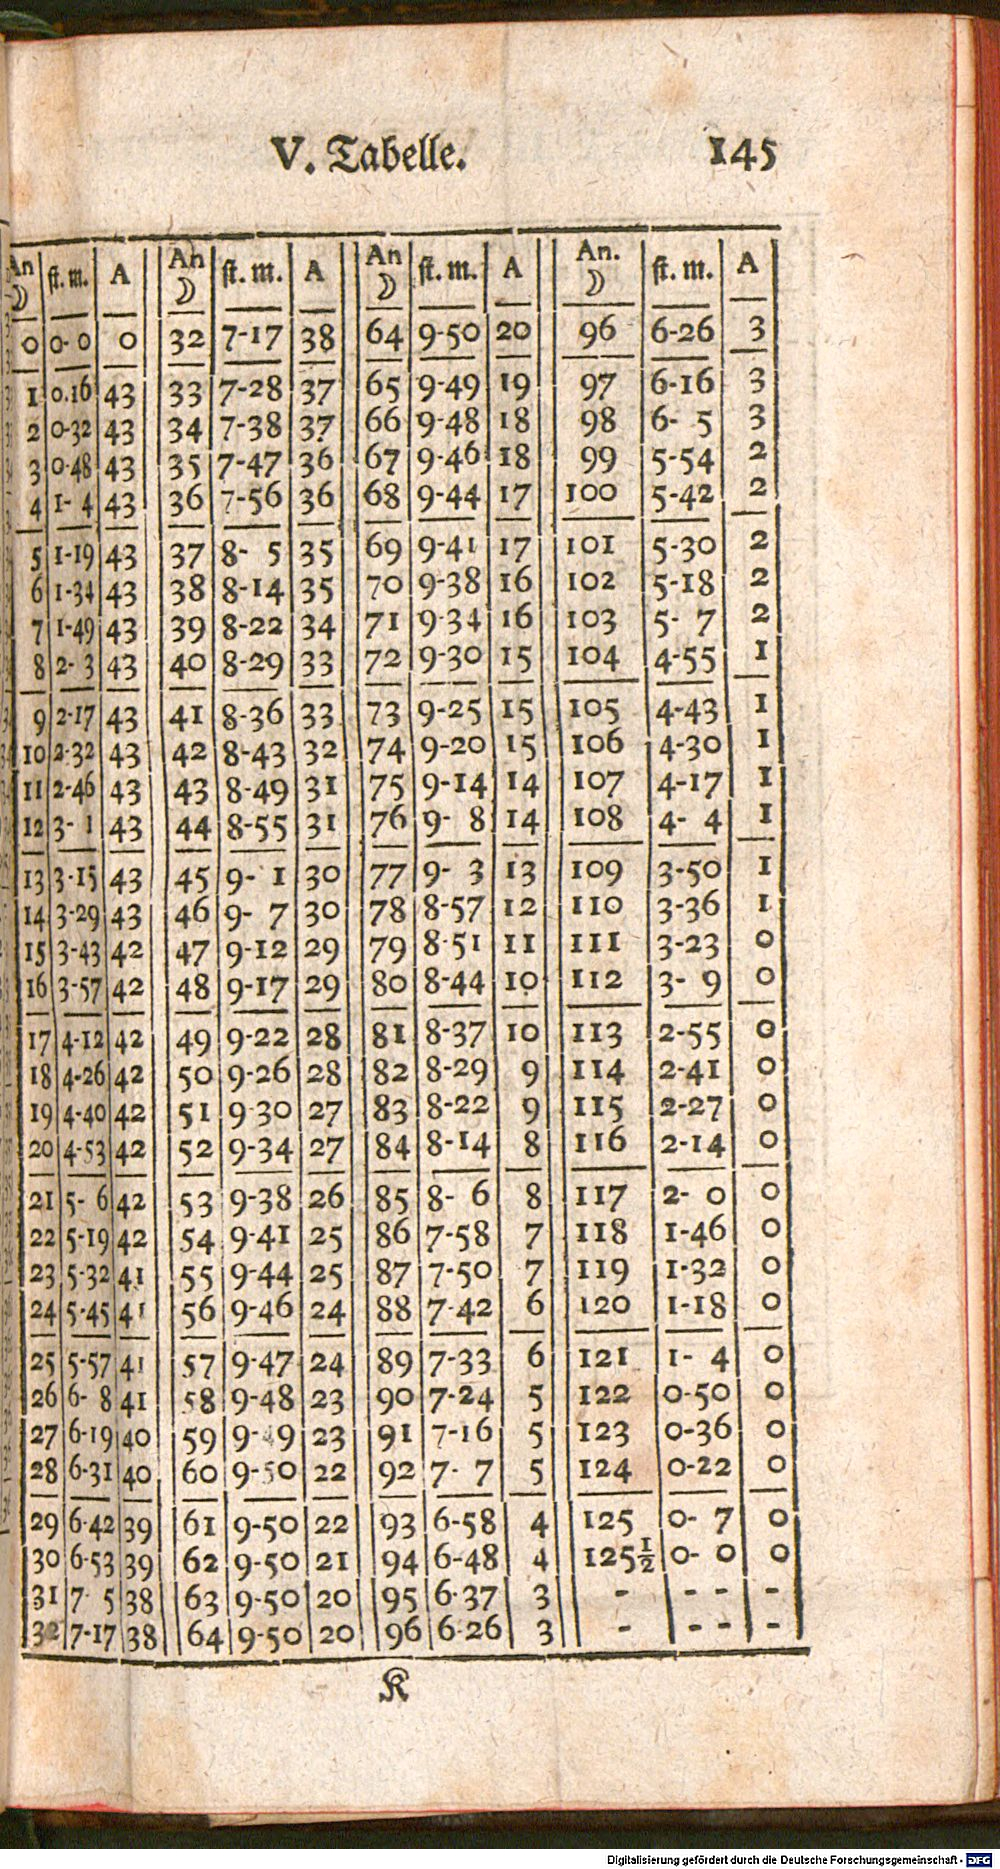 V. Tabelle. 145
An ☽ | st. m. | A | An ☽ | st. m. | A | An ☽ | st. m. | A | An. ☽ | st. m. | A
0 | 0- 0 | 0 | 32 | 7-17 | 38 | 64 | 9-50 | 20 | 96 | 6-26 | 3
1 | 0.16 | 43 | 33 | 7-28 | 37 | 65 | 9-49 | 19 | 97 | 6-16 | 3
2 | 0-32 | 43 | 34 | 7-38 | 37 | 66 | 9-48 | 18 | 98 | 6- 5 | 3
3 | 0-48 | 43 | 35 | 7-47 | 36 | 67 | 9-46 | 18 | 99 | 5-54 | 2
4 | 1- 4 | 43 | 36 | 7-56 | 36 | 68 | 9-44 | 17 | 100 | 5-42 | 2
5 | 1-19 | 43 | 37 | 8- 5 | 35 | 69 | 9-41 | 17 | 101 | 5-30 | 2
6 | 1-34 | 43 | 38 | 8-14 | 35 | 70 | 9-38 | 16 | 102 | 5-18 | 2
7 | 1-49 | 43 | 39 | 8-22 | 34 | 71 | 9-34 | 16 | 103 | 5- 7 | 2
8 | 2- 3 | 43 | 40 | 8-29 | 33 | 72 | 9-30 | 15 | 104 | 4-55 | 1
9 | 2-17 | 43 | 41 | 8-36 | 33 | 73 | 9-25 | 15 | 105 | 4-43 | 1
10 | 2-32 | 43 | 42 | 8-43 | 32 | 74 | 9-20 | 15 | 106 | 4-30 | 1
11 | 2-46 | 43 | 43 | 8-49 | 31 | 75 | 9-14 | 14 | 107 | 4-17 | 1
12 | 3- 1 | 43 | 44 | 8-55 | 31 | 76 | 9- 8 | 14 | 108 | 4- 4 | 1
13 | 3-15 | 43 | 45 | 9- 1 | 30 | 77 | 9- 3 | 13 | 109 | 3-50 | 1
14 | 3-29 | 43 | 46 | 9- 7 | 30 | 78 | 8-57 | 12 | 110 | 3-36 | 1
15 | 3-43 | 42 | 47 | 9-12 | 29 | 79 | 8-51 | 11 | 111 | 3-23 | 0
16 | 3-57 | 42 | 48 | 9-17 | 29 | 80 | 8-44 | 10 | 112 | 3- 9 | 0
17 | 4-12 | 42 | 49 | 9-22 | 28 | 81 | 8-37 | 10 | 113 | 2-55 | 0
18 | 4-26 | 42 | 50 | 9-26 | 28 | 82 | 8-29 | 9 | 114 | 2-41 | 0
19 | 4-40 | 42 | 51 | 9-30 | 27 | 83 | 8-22 | 9 | 115 | 2-27 | 0
20 | 4-53 | 42 | 52 | 9-34 | 27 | 84 | 8-14 | 8 | 116 | 2-14 | 0
21 | 5- 6 | 42 | 53 | 9-38 | 26 | 85 | 8- 6 | 8 | 117 | 2- 0 | 0
22 | 5-19 | 42 | 54 | 9-41 | 25 | 86 | 7-58 | 7 | 118 | 1-46 | 0
23 | 5-32 | 41 | 55 | 9-44 | 25 | 87 | 7-50 | 7 | 119 | 1-32 | 0
24 | 5-45 | 41 | 56 | 9-46 | 24 | 88 | 7-42 | 6 | 120 | 1-18 | 0
25 | 5-57 | 41 | 57 | 9-47 | 24 | 89 | 7-33 | 6 | 121 | 1- 4 | 0
26 | 6- 8 | 41 | 58 | 9-48 | 23 | 90 | 7-24 | 5 | 122 | 0-50 | 0
27 | 6-19 | 40 | 59 | 9-49 | 23 | 91 | 7-16 | 5 | 123 | 0-36 | 0
28 | 6-31 | 40 | 60 | 9-50 | 22 | 92 | 7- 7 | 5 | 124 | 0-22 | 0
29 | 6-42 | 39 | 61 | 9-50 | 22 | 93 | 6-58 | 4 | 125 | 0- 7 | 0
30 | 6-53 | 39 | 62 | 9-50 | 21 | 94 | 6-48 | 4 | 125½ | 0- 0 | 0
31 | 7- 5 | 38 | 63 | 9-50 | 20 | 95 | 6-37 | 3 | - | - - | -
32 | 7-17 | 38 | 64 | 9-50 | 20 | 96 | 6-26 | 3 | - | - - | -
K
Digitalisierung gefördert durch die Deutsche Forschungsgemeinschaft - DFG